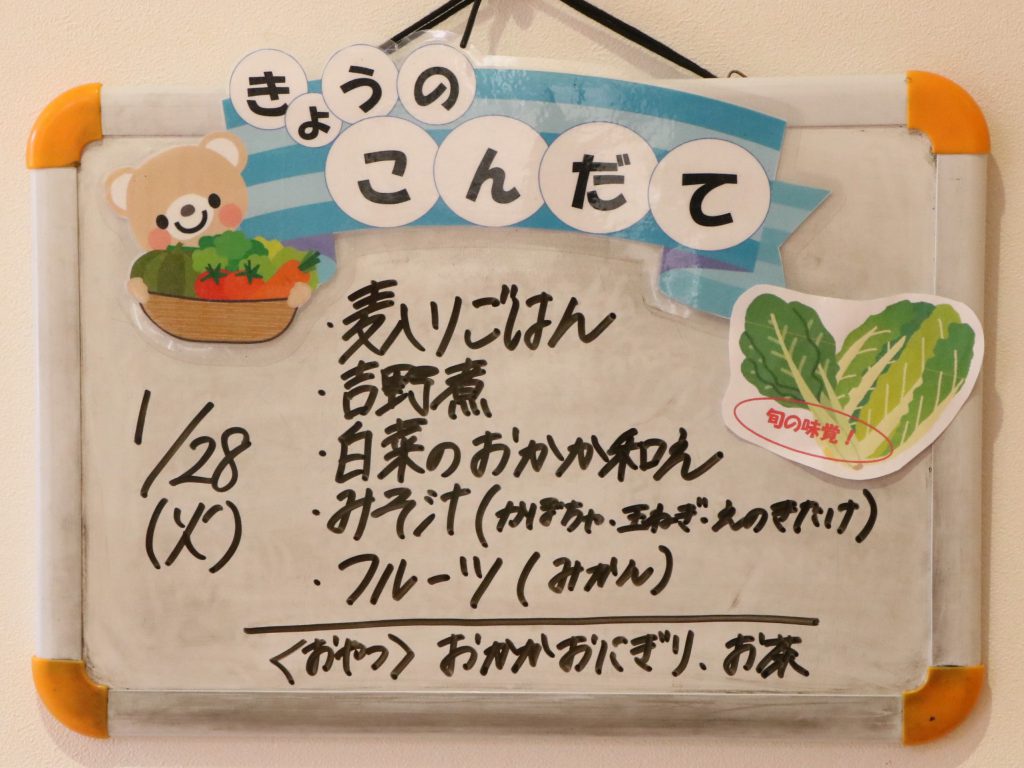 きょうの
こんだて
・麦入りごはん
・吉野煮
・白菜のおかか和え
旬の味覚！
1/28
(火)
・みそ汁(かぼちゃ・玉ねぎ・えのきだけ)
・フルーツ(みかん)
〈おやつ〉おかかおにぎり、お茶